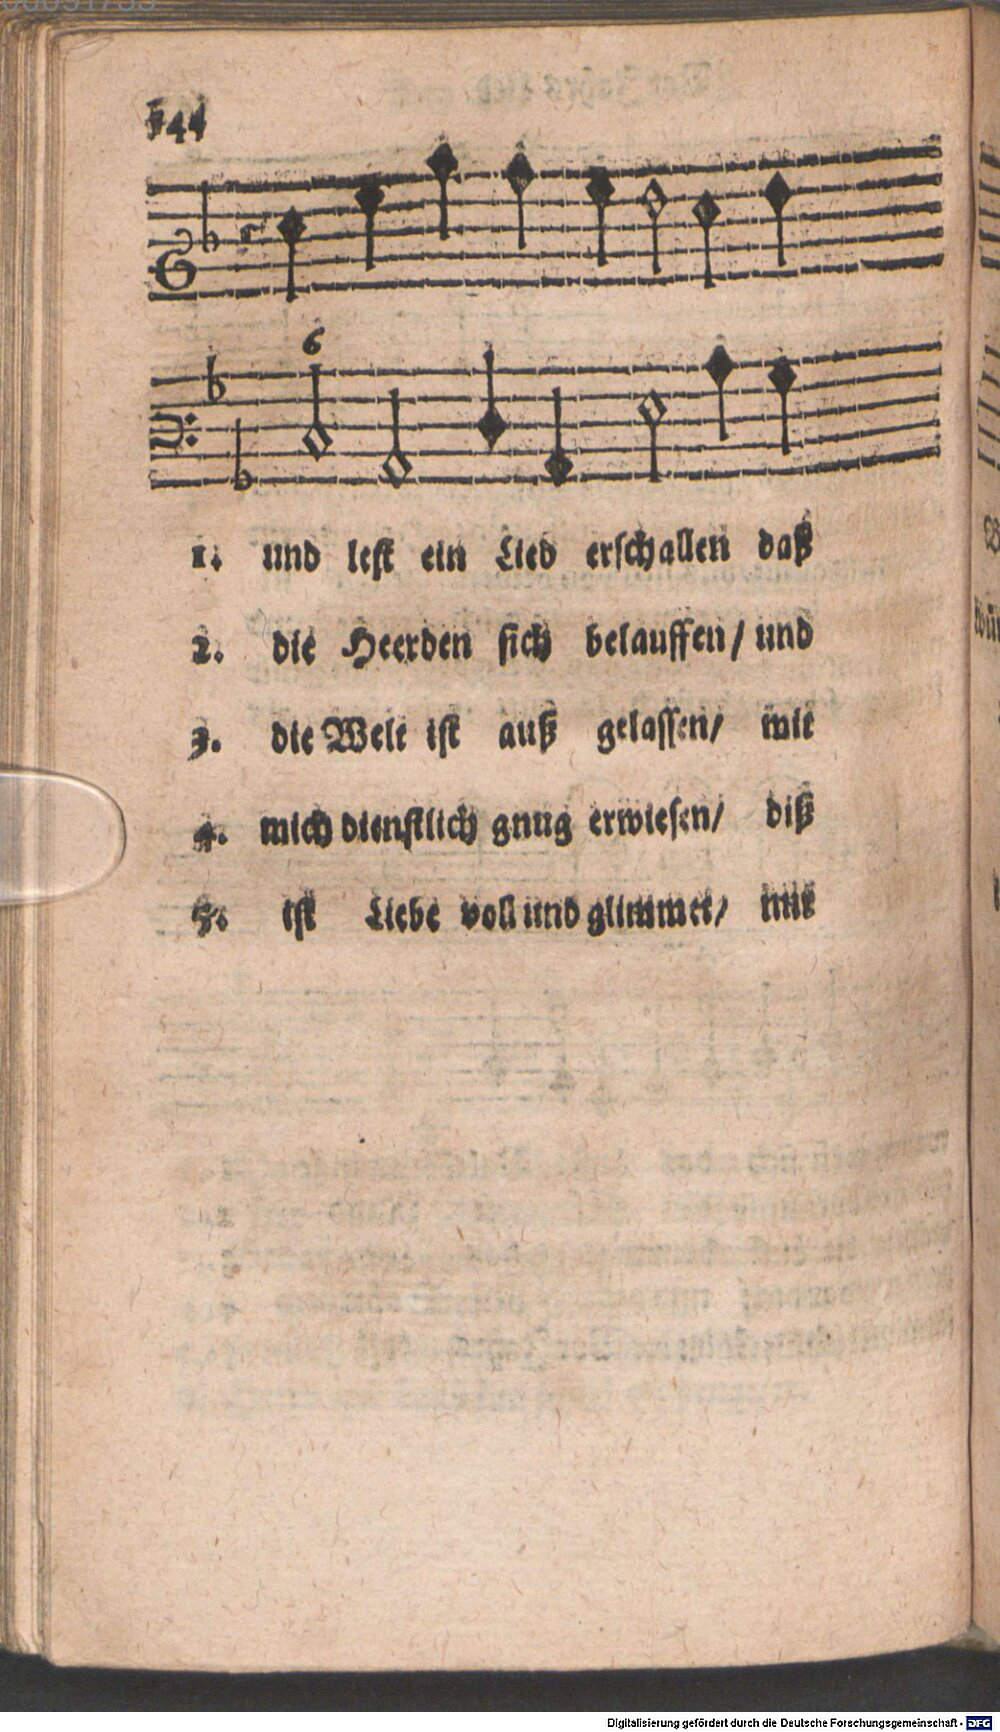 144
6
1. und lest ein Lied erschallen daß
2. die Heerden sich belauffen / und
3. die Welt ist auß gelassen / wie
4. mich dienstlich gnug erwiesen / diß
5. ist Liebe voll und glimmet / mit
Digitalisierung gefördert durch die Deutsche Forschungsgemeinschaft - DFG